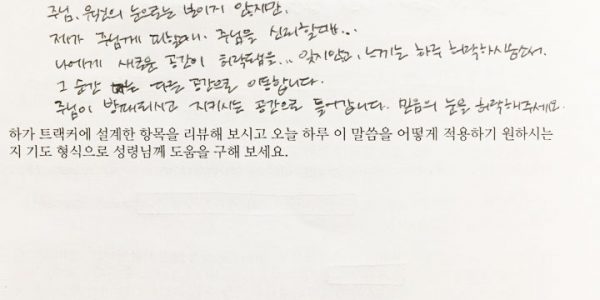 주님, 육신의 눈으로는 보이지 않지만,
제가 주님께 피할때, 주님을 신뢰할때...
나에게 새로운 공간이 허락됨을... 잊지않고, 느끼는 하루 허락하시옵소서.
그 순간 나는 다른 공간으로 이동합니다.
주님이 방패되시고 지키시는 공간으로 들어갑니다. 믿음의 눈을 허락해주세요.
하가 트랙커에 설계한 항목을 리뷰해 보시고 오늘 하루 이 말씀을 어떻게 적용하기 원하시는
지 기도 형식으로 성령님께 도움을 구해 보세요.